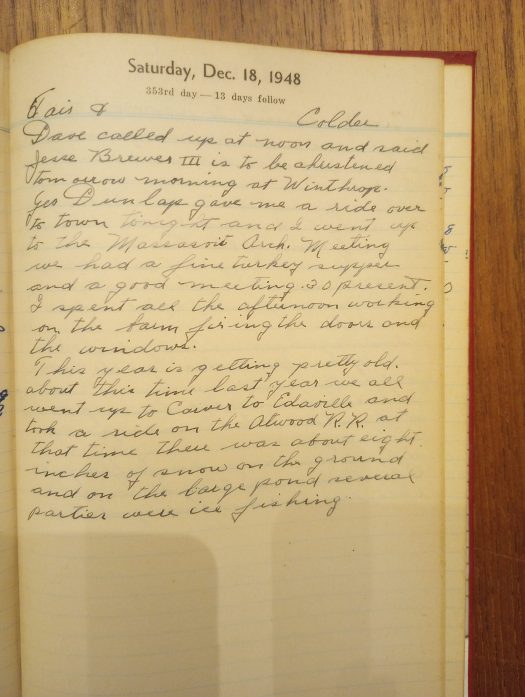 Saturday, Dec. 18, 1948
353rd day — 13 days follow
Fair & Colder
Dave called up at noon and said
Jesse Brewer III is to be christened
tomorrow morning at Winthrop.
Dunlap gave me a ride over
to town tonight and I went up
to the Massasoit Arch. Meeting
we had a fine turkey supper
and a good meeting. 30 present.
I spent all the afternoon working
on the barn fixing the doors and
the windows.
This year is getting pretty old.
about this time last year we all
went up to Carver to Edaville and
took a ride on the Atwood R.R. at
that time there was about eight
inches of snow on the ground
and on the large pond several
parties were ice fishing.